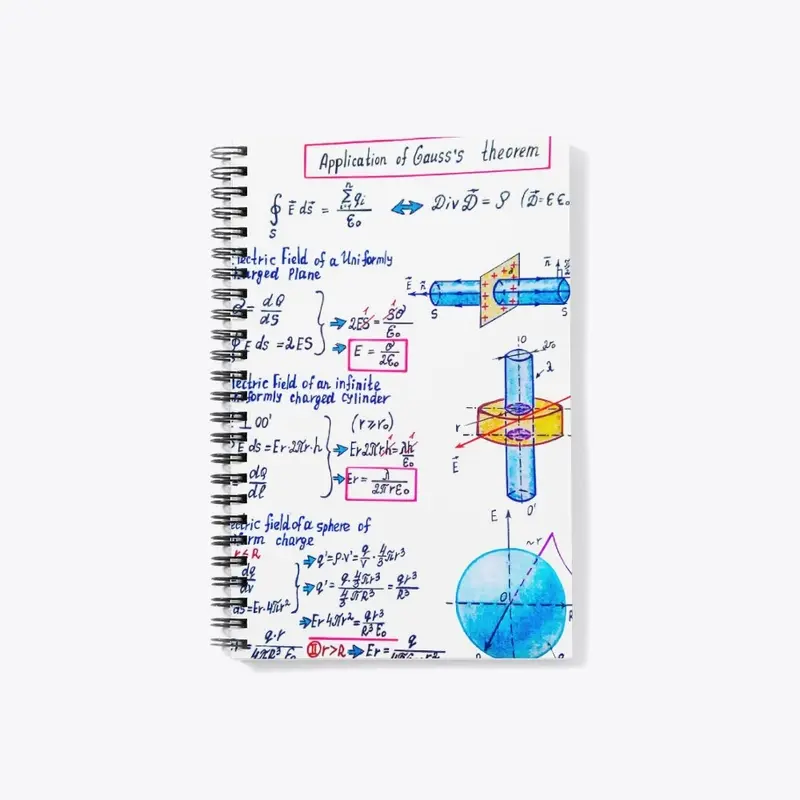 Application of Gauss's theorem
∮ E⃗ ds⃗ = Σqᵢ / ε₀ ⇔ Div D⃗ = ρ (D⃗ = εε₀
S i=1 n
lectric Field of a Uniformly
harged Plane
σ = dQ/dS
∮ E ds = 2ES
2ES = Sσ/ε₀
E = σ/2ε₀
E⃗ n⃗ S
n⃗ S
lectric Field of an infinite
iformly charged cylinder
⊥ OO'
(r ≥ r₀)
E ds = Er·2πr·h
Er2πrh = λh/ε₀
dQ/dl
Er = λ/2πrε₀
O
2r₀
λ
r
E⃗
O'
ectric field of a sphere of
form charge
r ≤ R
dq/dv
q' = ρ·v' = q/v · 4/3πr³
q' = q·4/3πr³ / 4/3πR³ = qr³/R³
ds = Er·4πr²
Er4πr² = qr³/R³ε₀
= q·r/4πR³ε₀
II r>R Er = q
E
~r
O
R